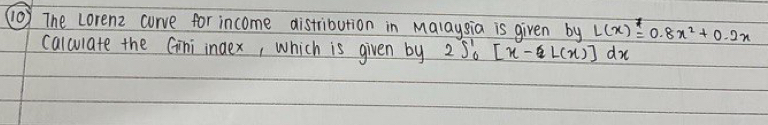 (10) The Lorenz curve for income distribution in Malaysia is given by L(x) = 0.8x² + 0.2x
Calculate the Gini index, which is given by 2 ∫₀¹ [x - L(x)] dx